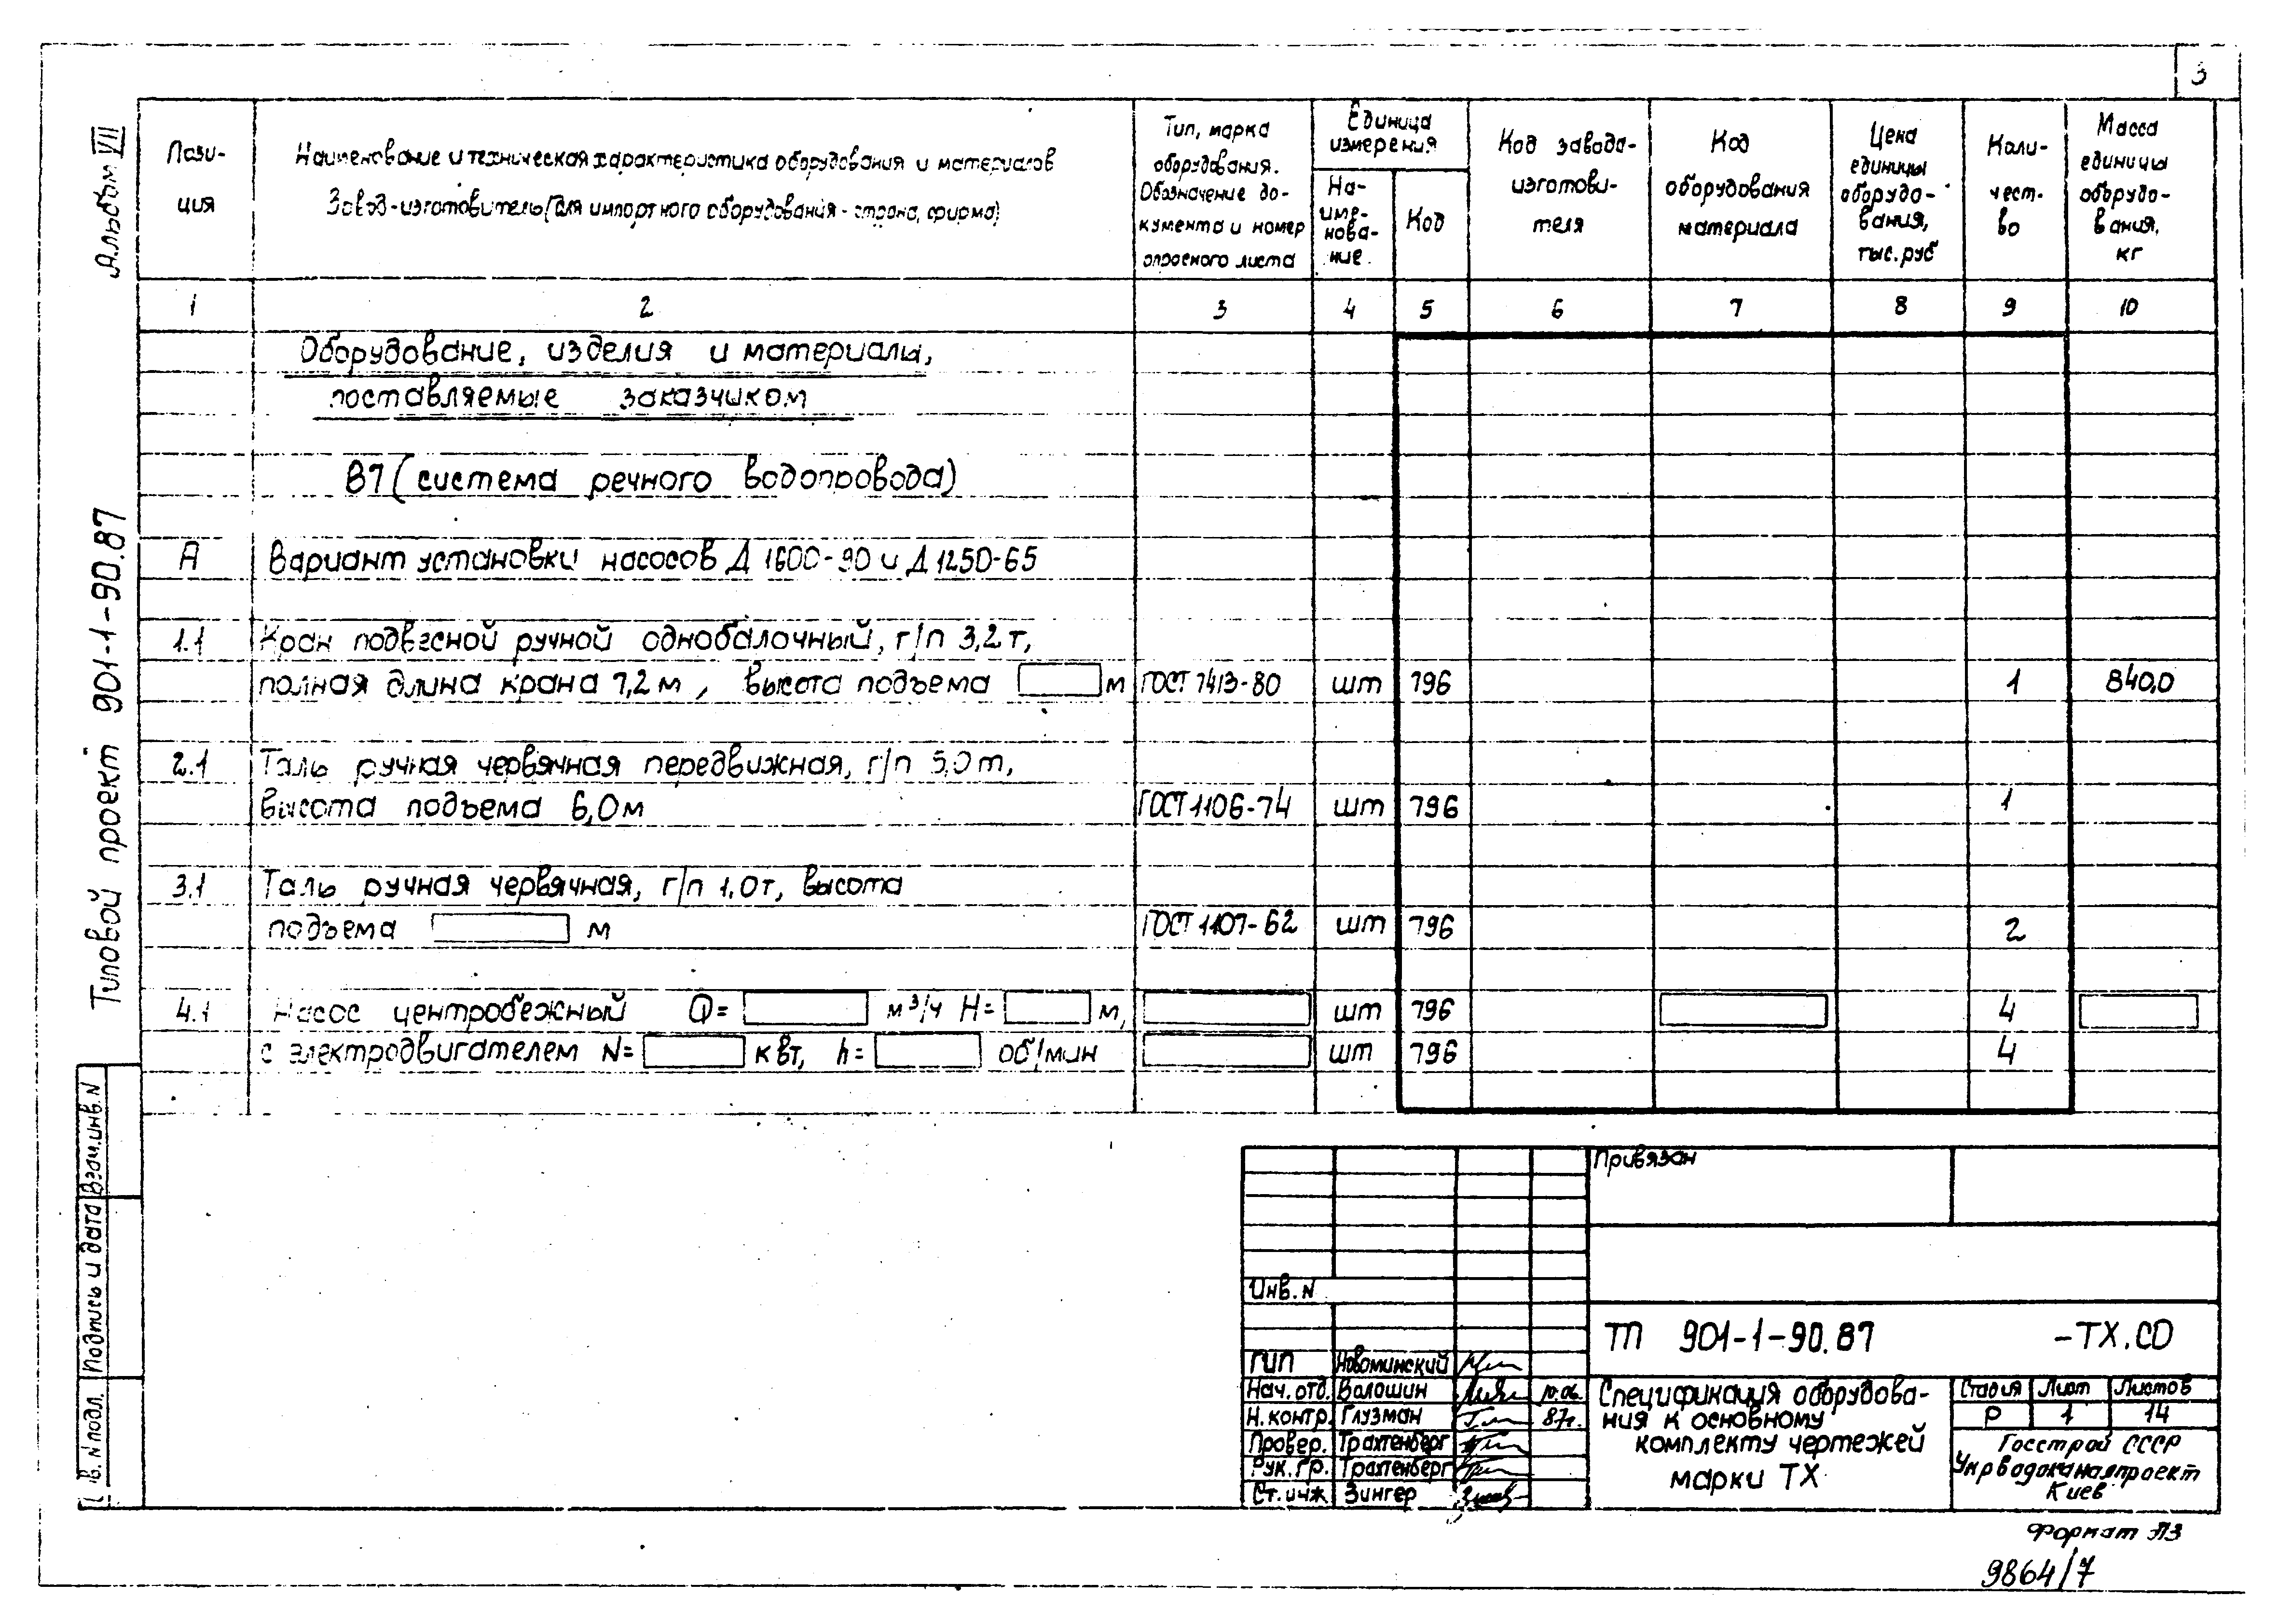 3
Альбом VII
Типовой проект 901-1-90.87
Пози-
ция
Наименование и техническая характеристика оборудования и материалов
Завод-изготовитель (для импортного оборудования - страна, фирма)
Тип, марка
оборудования.
Обозначение до-
кумента и номер
опросного листа
Единица
измерения
На-
име-
нова-
ние
Код
Код завода-
изготови-
теля
Код
оборудования
материала
Цена
единицы
оборудо-
вания,
тыс.руб
Коли-
чест-
во
Масса
единицы
оборудо-
вания,
кг
1 2 3 4 5 6 7 8 9 10
Оборудование, изделия и материалы,
поставляемые заказчиком
В7 (система речного водопровода)
А Вариант установки насосов Д 1600-90 и Д 1250-65
1.1 Кран подвесной ручной однобалочный, г/п 3,2 т,
полная длина крана 7,2 м, высота подъема м ГОСТ 7413-80 шт 796 1 840,0
2.1 Таль ручная червячная передвижная, г/п 5,0 т,
высота подъема 6,0 м ГОСТ 1106-74 шт 796 1
3.1 Таль ручная червячная, г/п 1,0 т, высота
подъема м ГОСТ 1107-62 шт 796 2
4.1 Насос центробежный Q= м³/ч H= м, шт 796 4
с электродвигателем N= квт, n= об/мин шт 796 4
Взам.инв.N
Подпись и дата
в. N подл.
Привязан
Инв. N
ТП 901-1-90.87 -ТХ.СО
ГИП Новоминский
Нач.отд. Волошин 10.06.
Н.контр. Глузман 87г.
Провер. Трахтенберг
Рук.гр. Трахтенберг
Ст.инж Зингер
Спецификация оборудова-
ния к основному
комплекту чертежей
марки ТХ
Стадия Лист Листов
Р 1 14
Госстрой СССР
Укрводоканалпроект
Киев
Формат А3
9864/7